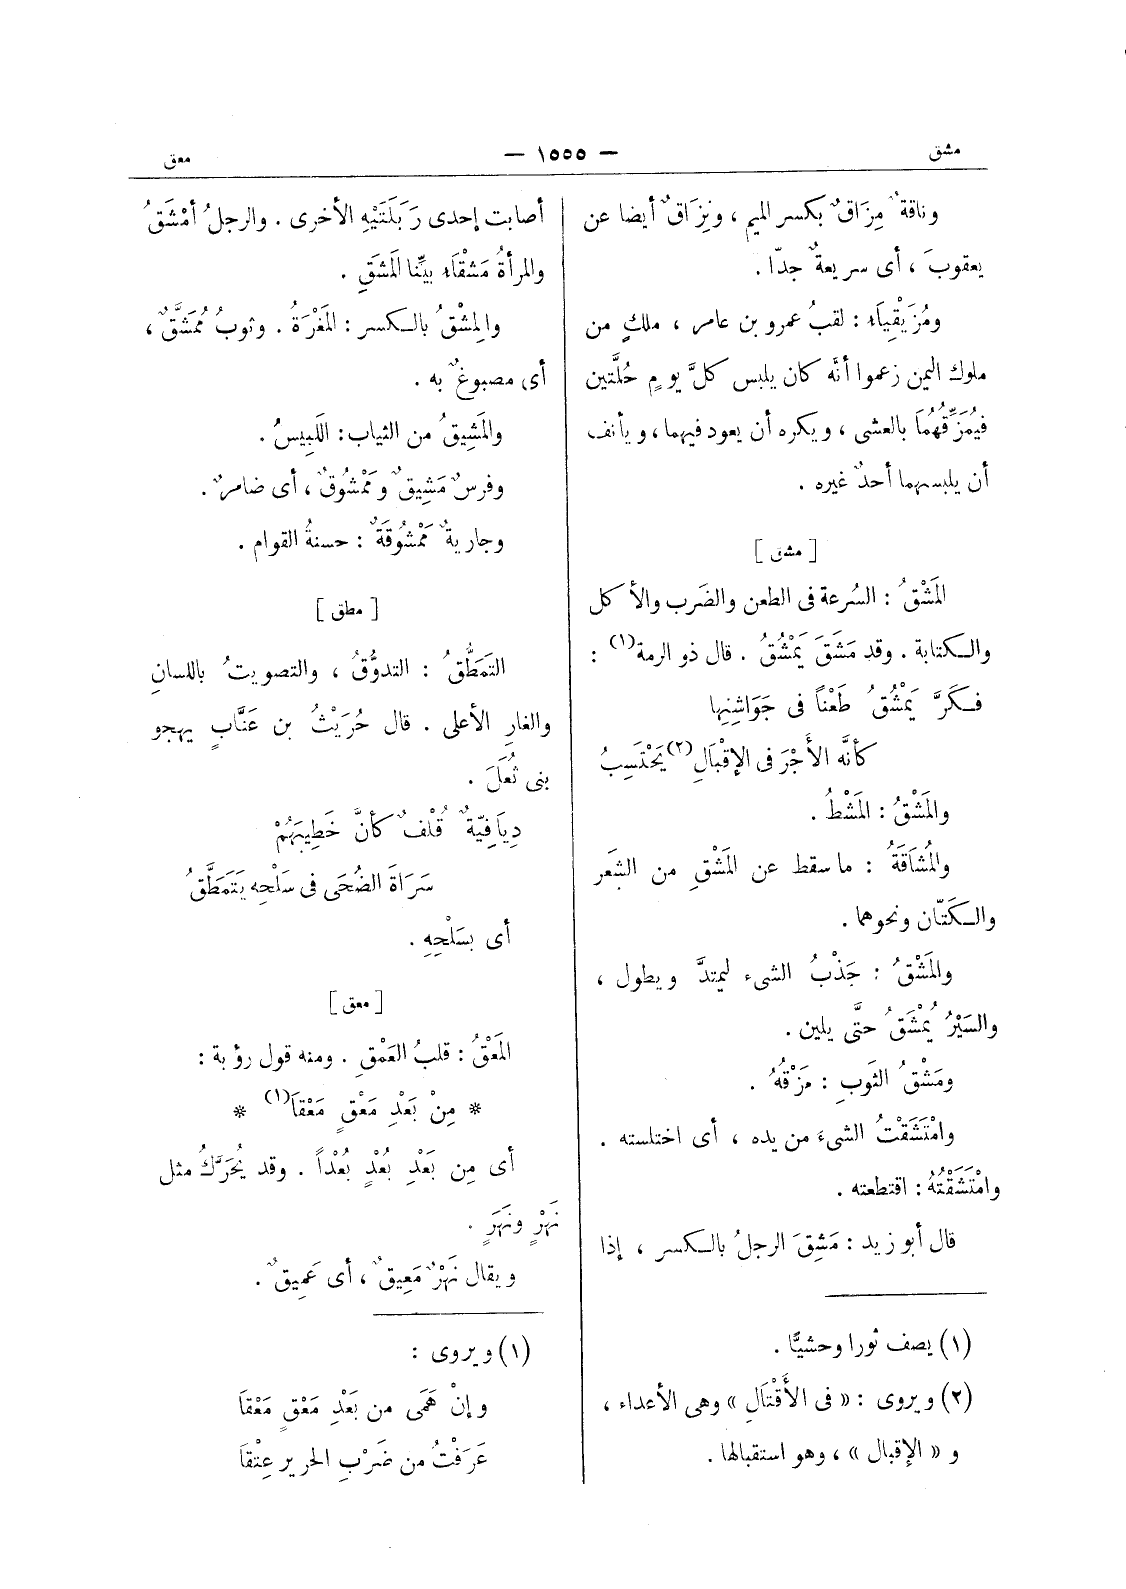 مشق
— ١٥٥٥ —
معق
وناقةٌ مِزَاقٌ بكسر الميم ، ونِزَاقٌ أيضا عن
يعقوبَ ، أى سريعةٌ جدّا .
ومُزَيْقِيَاء : لقبُ عمرو بن عامر ، ملكٍ من
ملوك اليمن زعموا أنَّه كان يلبس كلَّ يومٍ حُلَّتين
فيُمَزِّقُهُمَا بالعشى ، ويكره أن يعود فيهما ، ويأنف
أن يلبسهما أحدٌ غيره .
[ مشق ]
المَشْقُ : السُرعة فى الطعن والضَرب والأكل
والكتابة . وقد مَشَقَ يَمْشُقُ . قال ذو الرمة(١) :
فَكَرَّ يَمْشُقُ طَعْناً فى جَوَاشِنِها
كأنَّه الأَجْرَ فى الإقْبَالِ(٢) يَحْتَسِبُ
والمَشْقُ : المَشْطُ .
والمُشَاقَةُ : ما سقط عن المَشْقِ من الشَعر
والكَتّان ونحوهما .
والمَشْقُ : جَذْبُ الشىء ليمتدَّ ويطول ،
والسَيْرُ يُمْشَقُ حتَّى يلين .
ومَشْقُ الثَوبِ : مَزْقُهُ .
وامْتَشَقْتُ الشىءَ من يده ، أى اختلسته .
وامْتَشَقْتُهُ : اقتطعته .
قال أبو زيد : مَشِقَ الرجلُ بالكسر ، إذا
(١) يصف ثورا وحشيًّا .
(٢) ويروى : « فى الأَقْتَالِ » وهى الأعداء ،
و « الإقبال » ، وهو استقبالها .
أصابت إحدى رَبَلَتَيْهِ الأخرى . والرجلُ أمْشَقُ
والمرأةُ مَشْقَاء بيِّنا المَشَقِ .
والمِشْقُ بالكسر : المَغْرَةُ . وثوبٌ مُمَشَّقٌ ،
أى مصبوغٌ به .
والمَشِيقُ من الثياب : اللَبِيسُ .
وفرسٌ مَشِيقٌ ومَمْشُوقٌ ، أى ضامرٌ .
وجاريةٌ مَمْشُوقَةٌ : حسنةُ القوام .
[ مطق ]
التَمَطُّقُ : التذوُّقُ ، والتصويتُ باللسانِ
والغارِ الأعلى . قال حُرَيْثُ بن عَنَّابٍ يهجو
بنى ثُعَلَ .
دِيَافِيّةٌ قُلْفٌ كأنَّ خَطِيبَهُمْ
سَرَاةَ الضُحَى فى سَلْحِه يَتَمَطَّقُ
أى بسَلْحِهِ .
[ معق ]
المَعْقُ : قلبُ العَمْقِ . ومنه قول رؤبة :
* مِنْ بَعْدِ مَعْقٍ مَعْقاَ(١) *
أى مِن بَعْدِ بُعْدٍ بُعْداً . وقد يُحَرَّكُ مثل
نَهْرٍ ونَهَرٍ .
ويقال نَهْرٌ مَعِيقٌ ، أى عَمِيقٌ .
(١) ويروى :
وإنْ هَمَى من بَعْدِ مَعْقٍ مَعْقاَ
عَرَفْتُ من ضَرْبِ الحريرِ عِتْقاَ